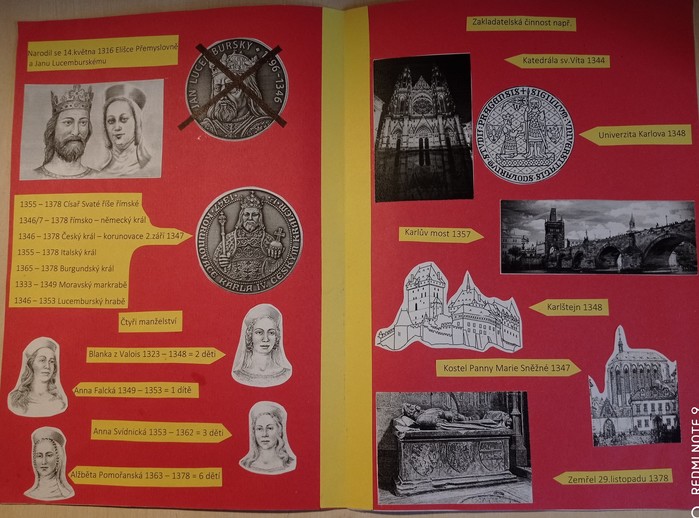 Narodil se 14.května 1316 Elišce Přemyslovně
a Janu Lucemburskému
JAN LUCEMBURSKÝ • 1296-1346
1355 – 1378 Císař Svaté říše římské
1346/7 – 1378 římsko – německý král
1346 – 1378 Český král - korunovace 2.září 1347
1355 – 1378 Italský král
1365 – 1378 Burgundský král
1333 – 1349 Moravský markrabě
1346 – 1353 Lucemburský hrabě
KARLA IV.
1347
Čtyři manželství
Blanka z Valois 1323 – 1348 = 2 děti
Anna Falcká 1349 – 1353 = 1 dítě
Anna Svídnická 1353 – 1362 = 3 děti
Alžběta Pomořanská 1363 – 1378 = 6 dětí
Zakladatelská činnost např.
Katedrála sv.Víta 1344
Univerzita Karlova 1348
Karlův most 1357
Karlštejn 1348
Kostel Panny Marie Sněžné 1347
Zemřel 29.listopadu 1378
REDMI NOTE 9